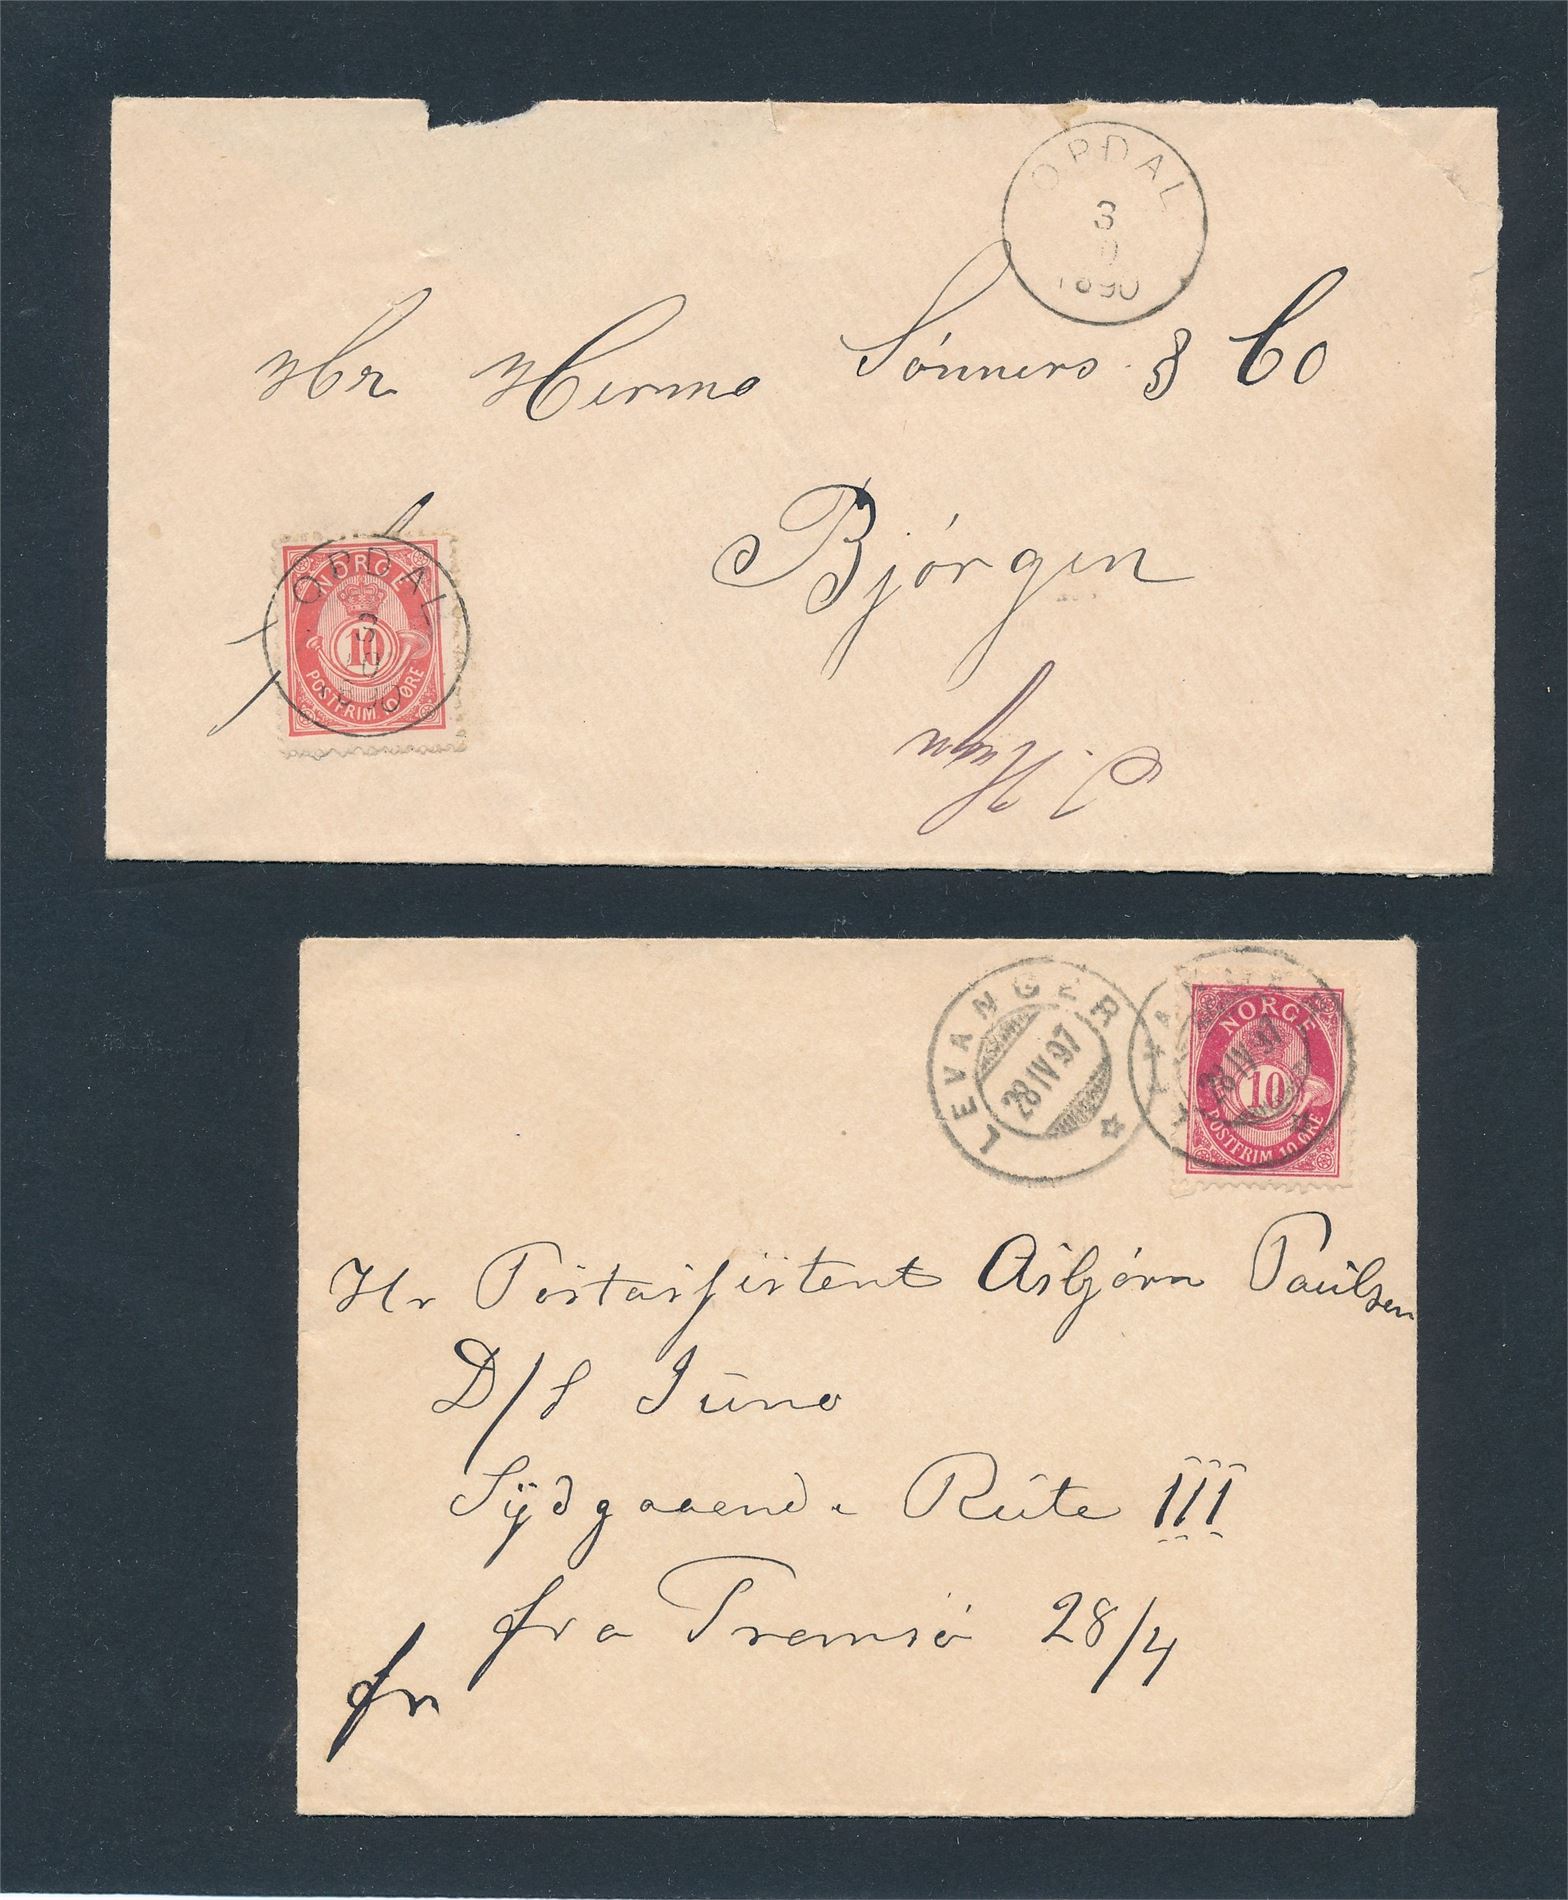 OPDAL
3
1890
Hr Herme Sønners & Co
Bjørgen
OPDAL
3
NORGE
10
POSTFRIM 10 ØRE
LEVANGER
28 IV 97
28 IV 97
NORGE
10
POSTFRIM 10 ØRE
Hr Postassistent Asbjørn Paulsen
D/S Juno
Sydgaaende Rute III
fra Tromsø 28/4
fr